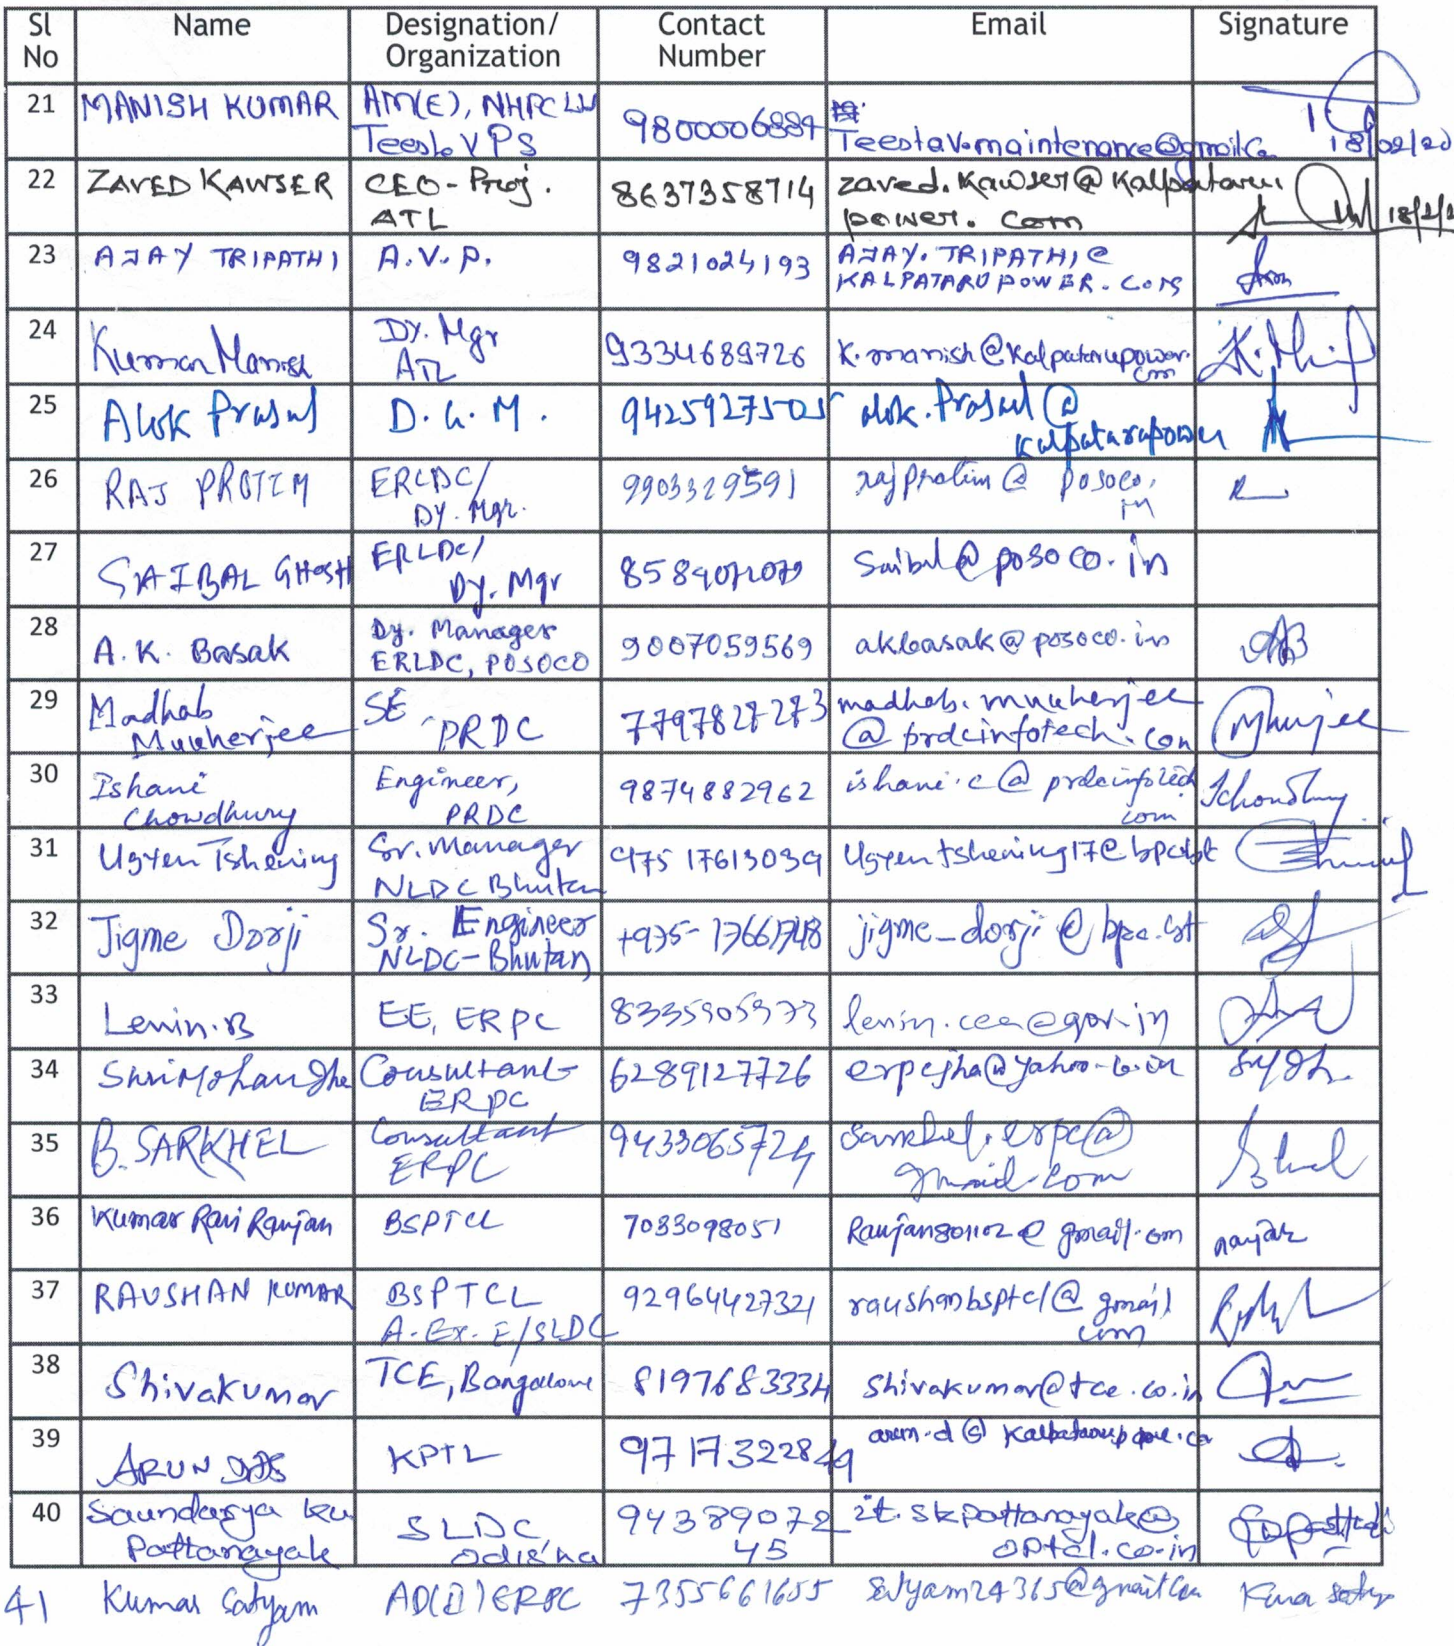 Sl No Name Designation/ Organization Contact Number Email Signature
21 MANISH KUMAR AM(E), NHPC Ltd Teesta V PS 9800006884 Teestav.maintenance@gmail.co 18/02/20
22 ZAVED KAWSER CEO-Proj. ATL 8637358714 zaved.kawser@kalpataru power.com 18/2/2
23 AJAY TRIPATHI A.V.P. 9821024193 AJAY.TRIPATHI@ KALPATARUPOWER.COM
24 Kumar Manish Dy. Mgr ATL 9334689726 K.manish@kalpatarupower.com
25 Alok Prasad D.G.M. 9425927505 alok.Prasad@ kalpatarupower
26 RAJ PROTIM ERLDC/ DY. Mgr. 9903329591 rajprotim@posoco.in
27 SAIBAL GHOSH ERLDC/ Dy. Mgr 8584072079 Saibal@posoco.in
28 A.K. Basak Dy. Manager ERLDC, POSOCO 9007059569 akbasak@posoco.in
29 Madhab Mukherjee SE, PRDC 7797827273 madhab.mukherjee @prdcinfotech.com
30 Ishani Chowdhury Engineer, PRDC 9874882962 ishani.c@prdcinfotech com IChowdhury
31 Ugyen Tshering Sr. Manager NLDC Bhutan 975 17613039 Ugyentshering17@bpc.bt
32 Jigme Dorji Sr. Engineer NLDC-Bhutan jigme_dorji@bpc.bt
33 Lenin.B EE, ERPC 8335905973 lenin.cea@gov.in
34 Shri Mohan Jha Consultant ERPC 6289127726 erpcjha@yahoo.co.in
35 B. SARKHEL Consultant ERPC 9433065724 sarkhel.erpc@ gmail.com
36 Kumar Ravi Ranjan BSPTCL 7033098051 Ranjan801102@gmail.com ranjan
37 RAUSHAN KUMAR BSPTCL A.Ex.E/SLDC 9296442732 raushanbsptcl@gmail com
38 Shivakumar TCE, Bangalore 8197683334 Shivakumar@tce.co.in
39 ARUN DAS KPTL 9717322849 arun.d@kalpatarupower.co
40 Saundarya ku Pattanayak SLDC, odisha 94389072 45 skpattanayak@ optcl.co.in
41 Kumar Satyam AD(I) ERPC 7355661655 satyam24365@gmail.com Kumar Satyam